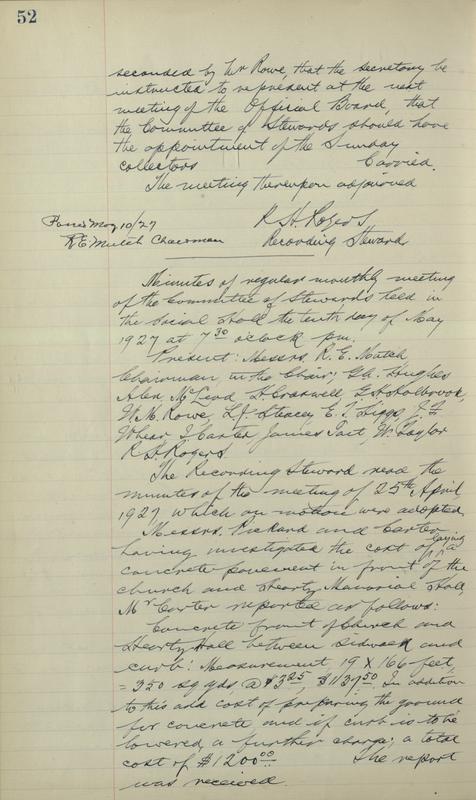 52
seconded by Mr Rowe, that the secretary be
instructed to represent at the next
meeting of the Official Board, that
the Committee of Stewards should have
the appointment of the Sunday
collectors Carried.
The meeting thereupon adjourned
May 10/27
R.E. Mutch Chairman
R H Rogers
Recording Steward
Minutes of regular monthly meeting
of the Committee of Stewards held in
the Social Hall the tenth day of May
1927 at 7 30 oclock pm.
Present: Messrs. R. E. Mutch,
Chairman, in the Chair; Hughes
Alex McLeod, H. Cresswell, Holbrook,
W. M. Rowe, Stacey E. J. Higgs, J. F
Whear J. Carter James Tait W. Taylor
R H Rogers
The Recording Steward read the
minutes of the meeting of 25th April
1927 which on motion were adopted
Messrs. Pickard and Carter
having investigated the cost of laying a
concrete pavement in front of the
church and Heartz Memorial Hall
Mr Carter reported as follows:
Concrete front of Church and
Heartz Hall between sidewalk and
curb: Measurement 19 X 166 feet,
= 350 sq yds, @ $3.25, $1137.50. In addition
to this add cost of preparing the ground
for concrete, and if curb is to be
lowered, a further charge; a total
cost of $1200.00 The report
was received.